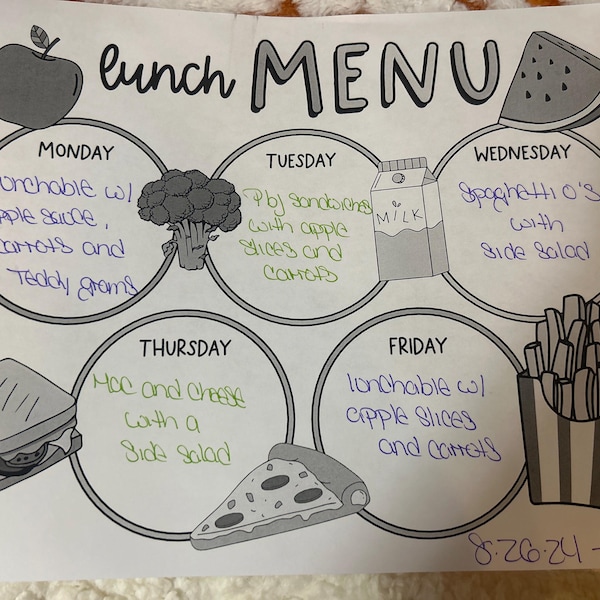 lunch MENU
MONDAY
lunchable w/
apple sauce,
carrots and
Teddy grams
TUESDAY
Pbj sandwiches
with apple
slices and
carrots
MILK
WEDNESDAY
Spaghetti O's
with
side salad
THURSDAY
Mac and cheese
with a
side salad
FRIDAY
lunchable w/
apple slices
and carrots
8·26·24 -